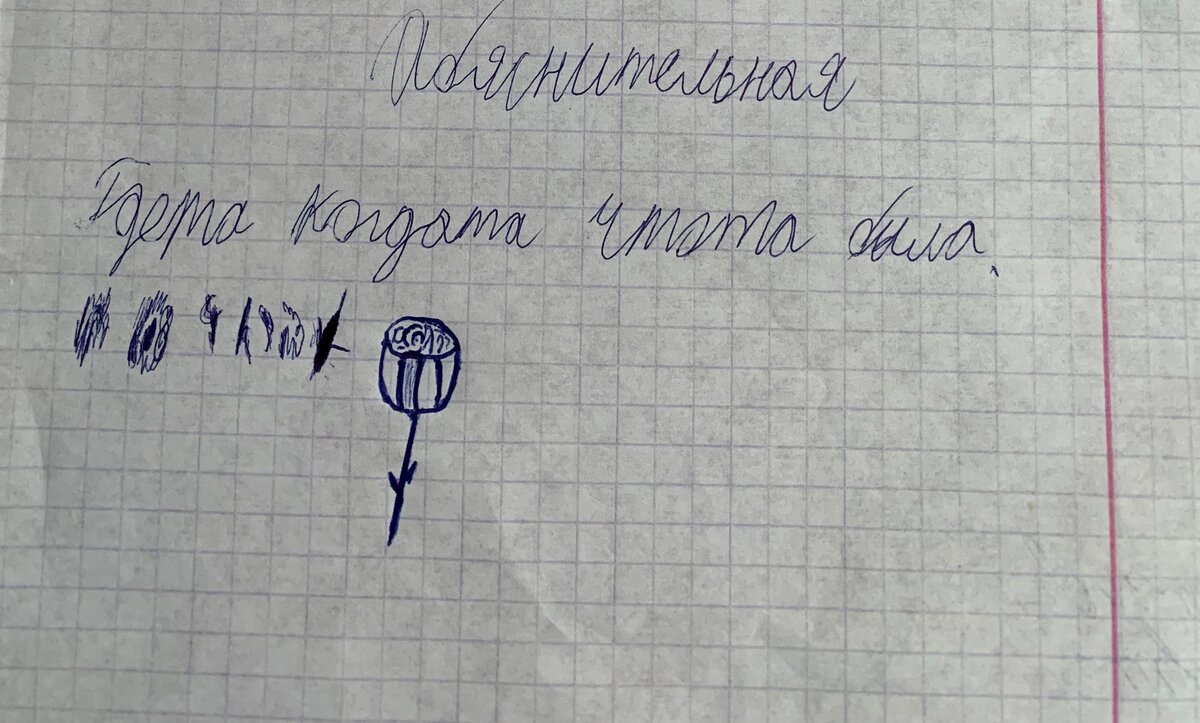 Обяснительная
Гдета когдата чтота была.